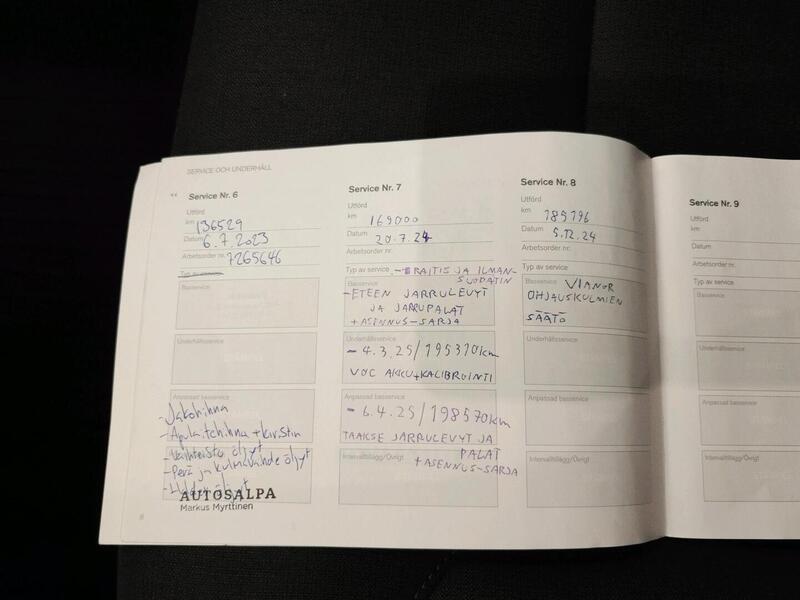 SERVICE OCH UNDERHÅLL
Service Nr. 6
Utförd
km 136529
Datum 6.7.2023
Arbetsorder nr. 7265646
Typ av service
Basservice
Underhållsservice
Anpassad basservice
- Jakohihna
- Apulaitehihna + kiristin
- Vaihteisto öljyt
- Perä ja kulmavaihde öljyt
AUTOSALPA
Markus Myrttinen
8
Service Nr. 7
Utförd
km 169000
Datum 20.7.24
Arbetsorder nr.
Typ av service - RAITIS JA ILMAN-
SUODATIN
Basservice
- ETEEN JARRULEVYT
JA JARRUPALAT
+ ASENNUS-SARJA
Underhållsservice
- 4.3.25/195370km
VOC AKKU+KALIBROINTI
Anpassad basservice
- 6.4.25/198570km
TAAKSE JARRULEVYT JA
PALAT
Intervalltillägg/Övrigt
+ ASENNUS-SARJA
Service Nr. 8
Utförd
km 189796
Datum 5.12.24
Arbetsorder nr.
Typ av service
Basservice VIANOR
OHJAUSKULMIEN
SÄÄTÖ
Underhållsservice
Anpassad basservice
Intervalltillägg/Övrigt
Service Nr. 9
Utförd
km
Datum
Arbetsorder nr.
Typ av service
Basservice
Underhållsservice
Anpassad basservice
Intervalltillägg/Övrigt